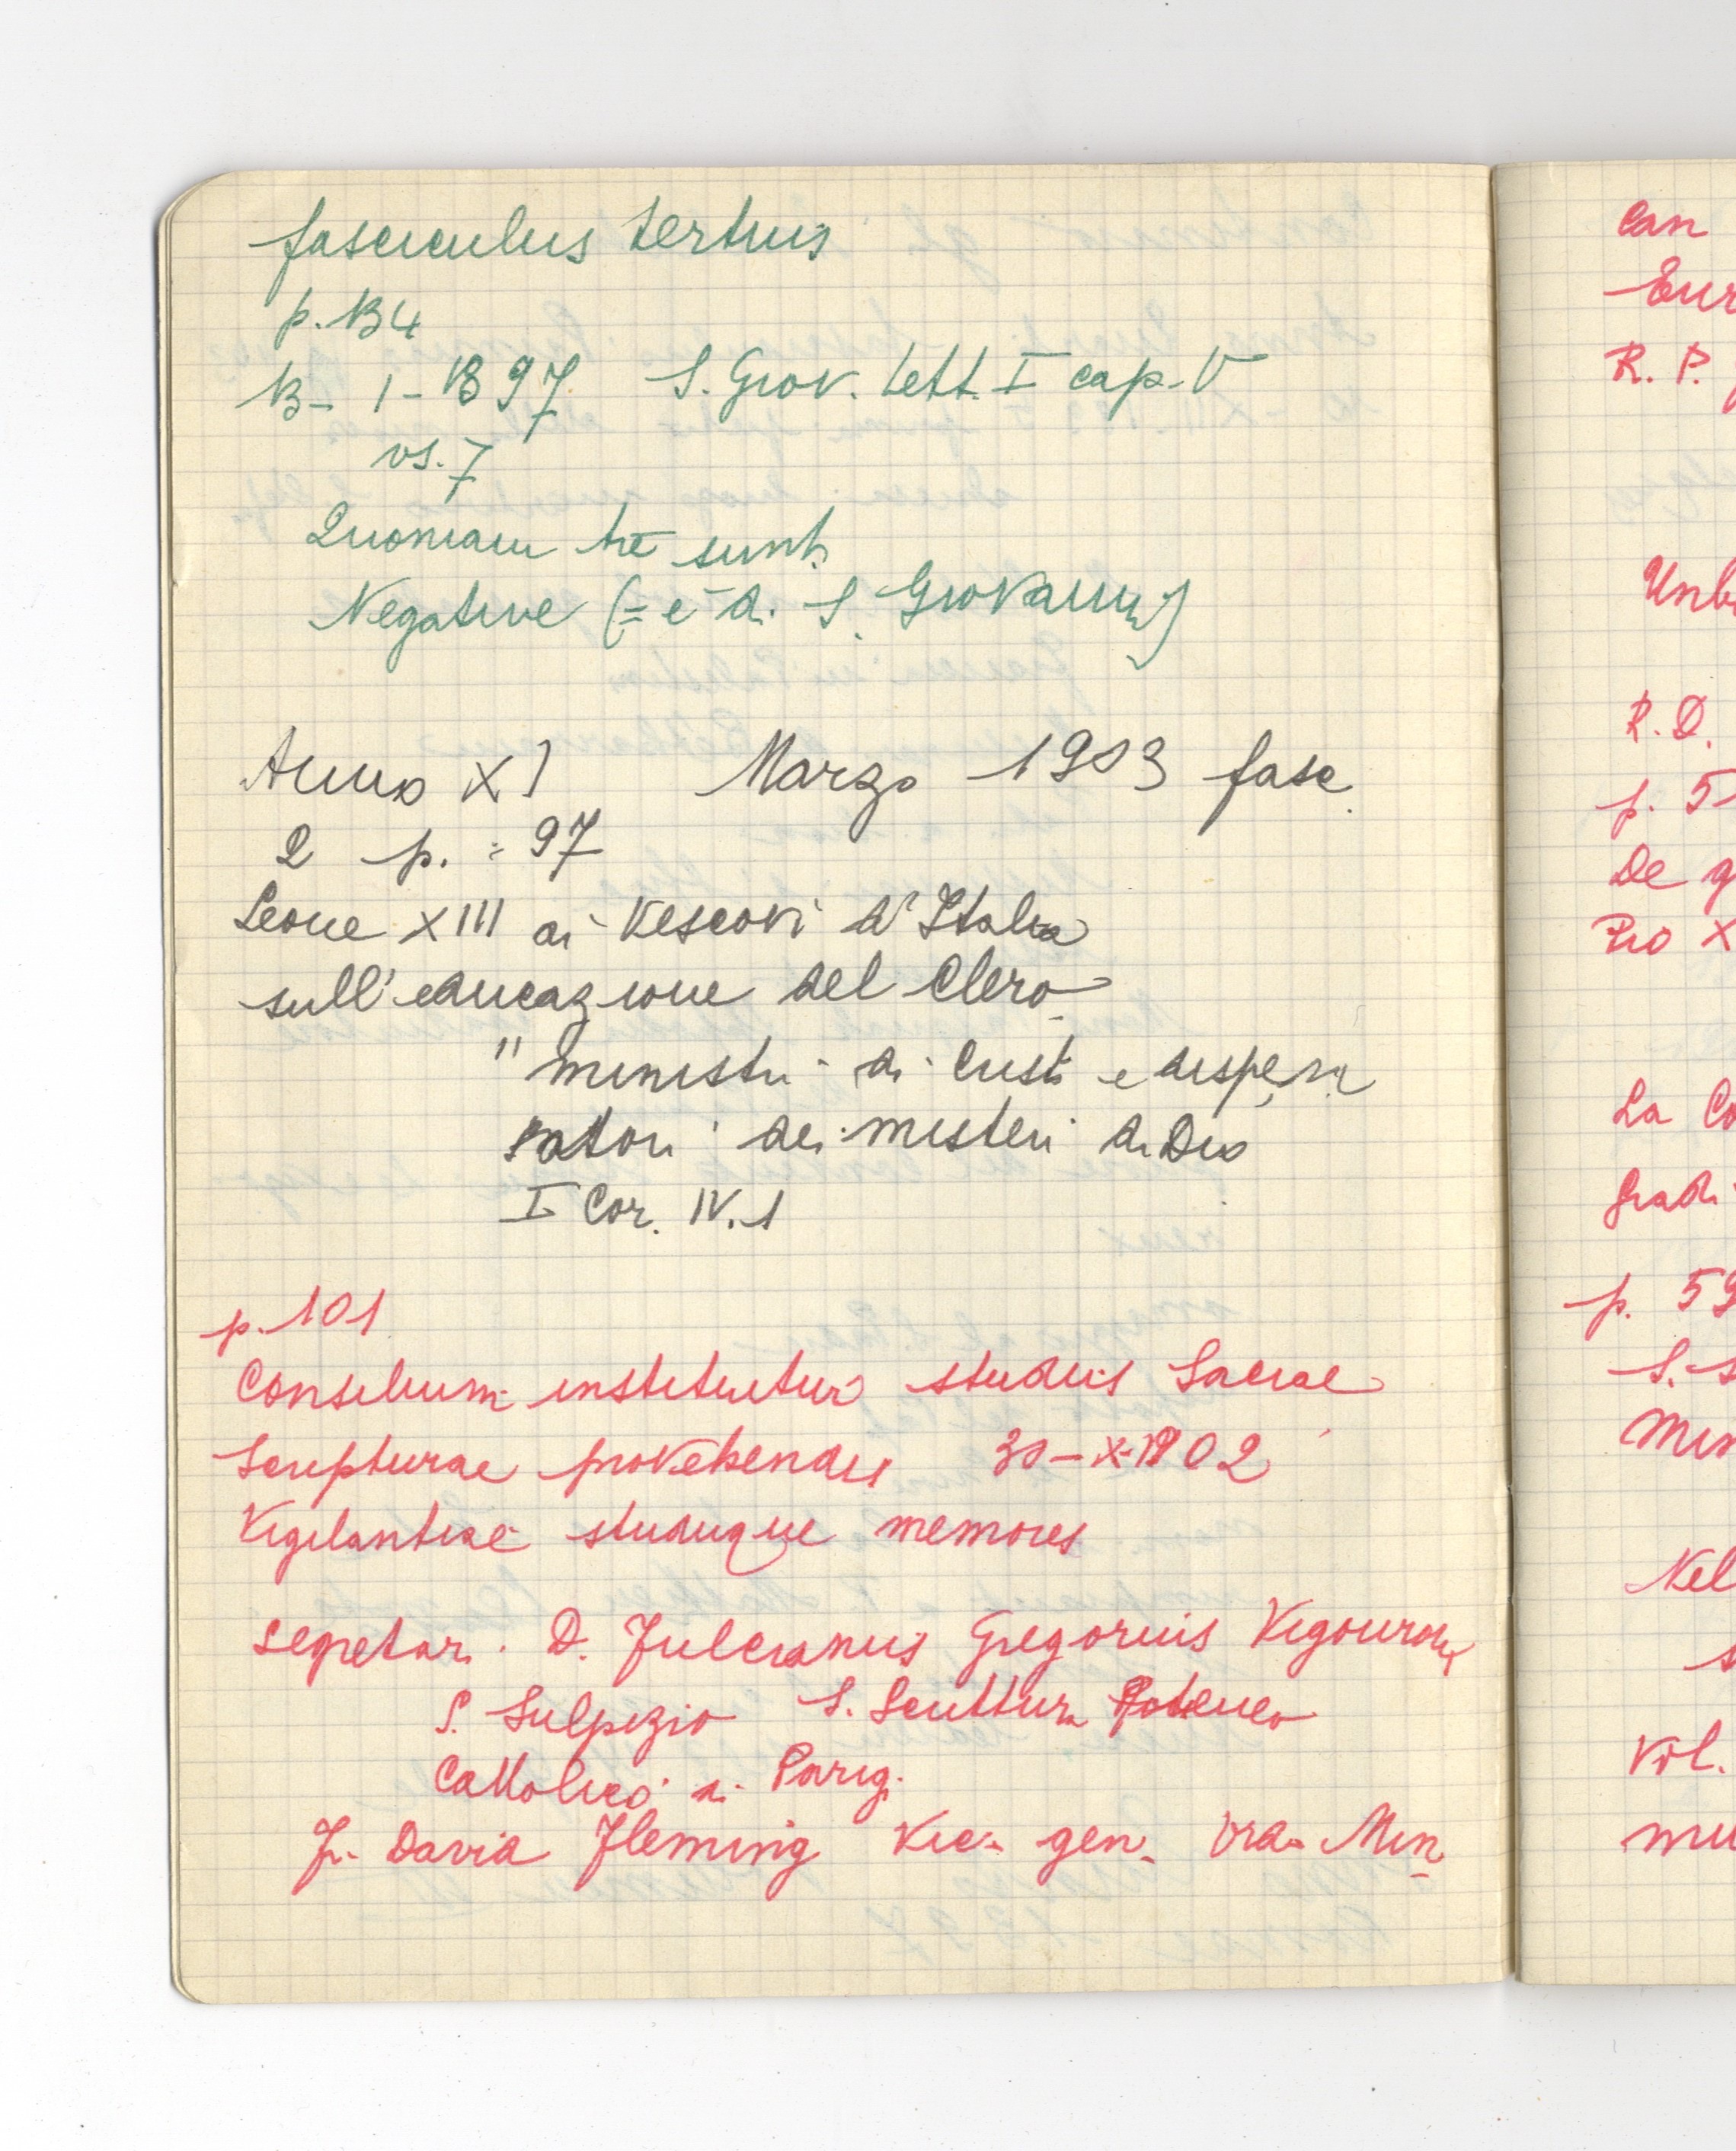 fasciculus tertius
p. 134
13- 1-1897 S. Giov. Lett. I cap. V
vs. 7
Quoniam tre sunt.
Negative (= è di S. Giovanni)
Anno XI Marzo 1903 fasc.
2 p. = 97
Leone XIII ai Vescovi d'Italia
sull'educazione del Clero
"ministri di Cristo e dispen
satori dei misteri di Dio
I Cor. IV. 1
p. 101
Consilium instituitur studiis Sacrae
Scripturae provehendis 30-X-1902
Vigilantiae studiique memores
segretar. D. Fulcranus Gregorius Vigouroux
S. Sulpizio S. Scrittura
Cattolico di Parig.
Fr. David Fleming Vic. gen. Ord. Min.
Can
Eur
R. P.
Unb
R. D.
p. 5
De q
Pio X
La Co
gradi
p. 59
S. S
Min
Nel
s
Vol.
mu